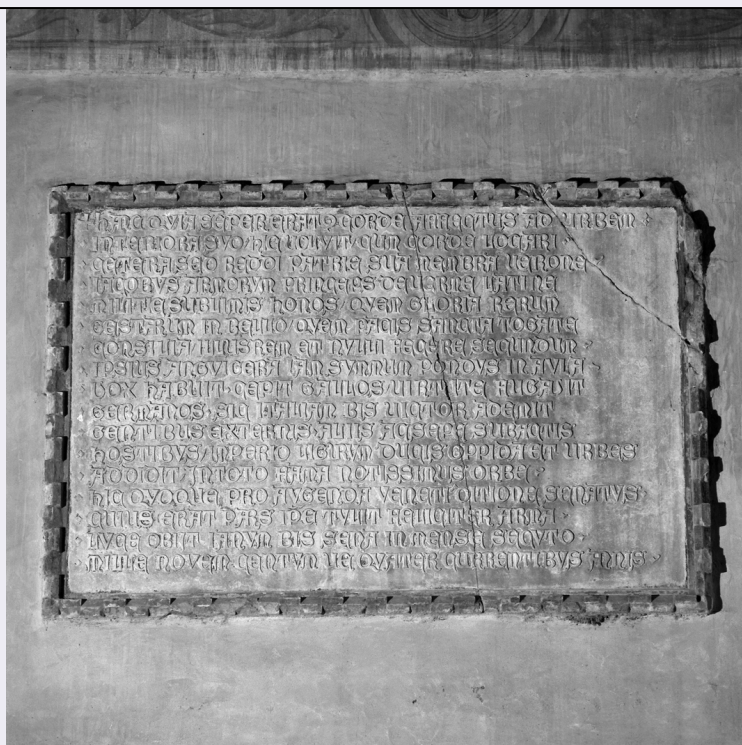 HANC QVIA SEPER ERAT CORDE ARRECTUS AD URBEM
INTERIORA SVO HIC VOLVIT CUM CORDE LOCARI
CETERA SED REDDI PATRIE SUA MEMBRA VERONE
IACOBVS ARMORUM PRINCEPS DE VERME LATINE
MILITIE SUBLIMIS HONOS QVEM GLORIA RERUM
GESTARUM IN BELLO QVEM PACIS SANCTA TOGATE
CONSILIA REM ET NVLLI FECERE SECUNDUM
IPSIUS ANGVIGERA IAM SVMMUM PONDVS IN AVLA
VOX HABUIT CEPIT GALLOS VIRTUTE FUGAVIT
GERMANOS SIC ITALIAM BIS VICTOR ADEMIT
GENTIBUS EXTERNIS ALIIS AC SEPE SUBACTIS
HOSTIBUS IMPERIO LIGURUM DUCIS OPPIDA ET URBES
ADDIDIT IN TOTO FAMA NOTISSIMUS ORBE
HIC QVOQUE PRO AVGENDA VENETI DITIONE SENATVS
CUIUS ERAT PARS IPE TVLIT FELICITER ARMA
LVCE OBIIT IANVM BIS SENA IN MENSE SECVTO
MILLE NOVEM CENTVM QVATER CURRENTIBVS ANNIS